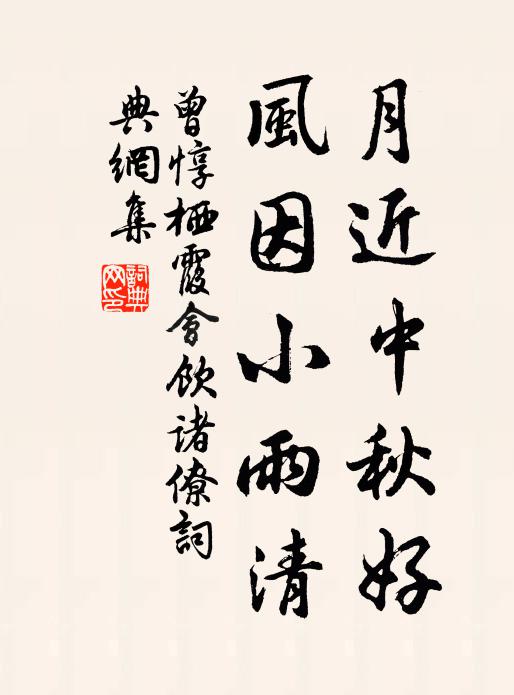 月近中秋好
風因小雨清
曾惇栖霞會飲諸僚詞
典網集
詞典網印